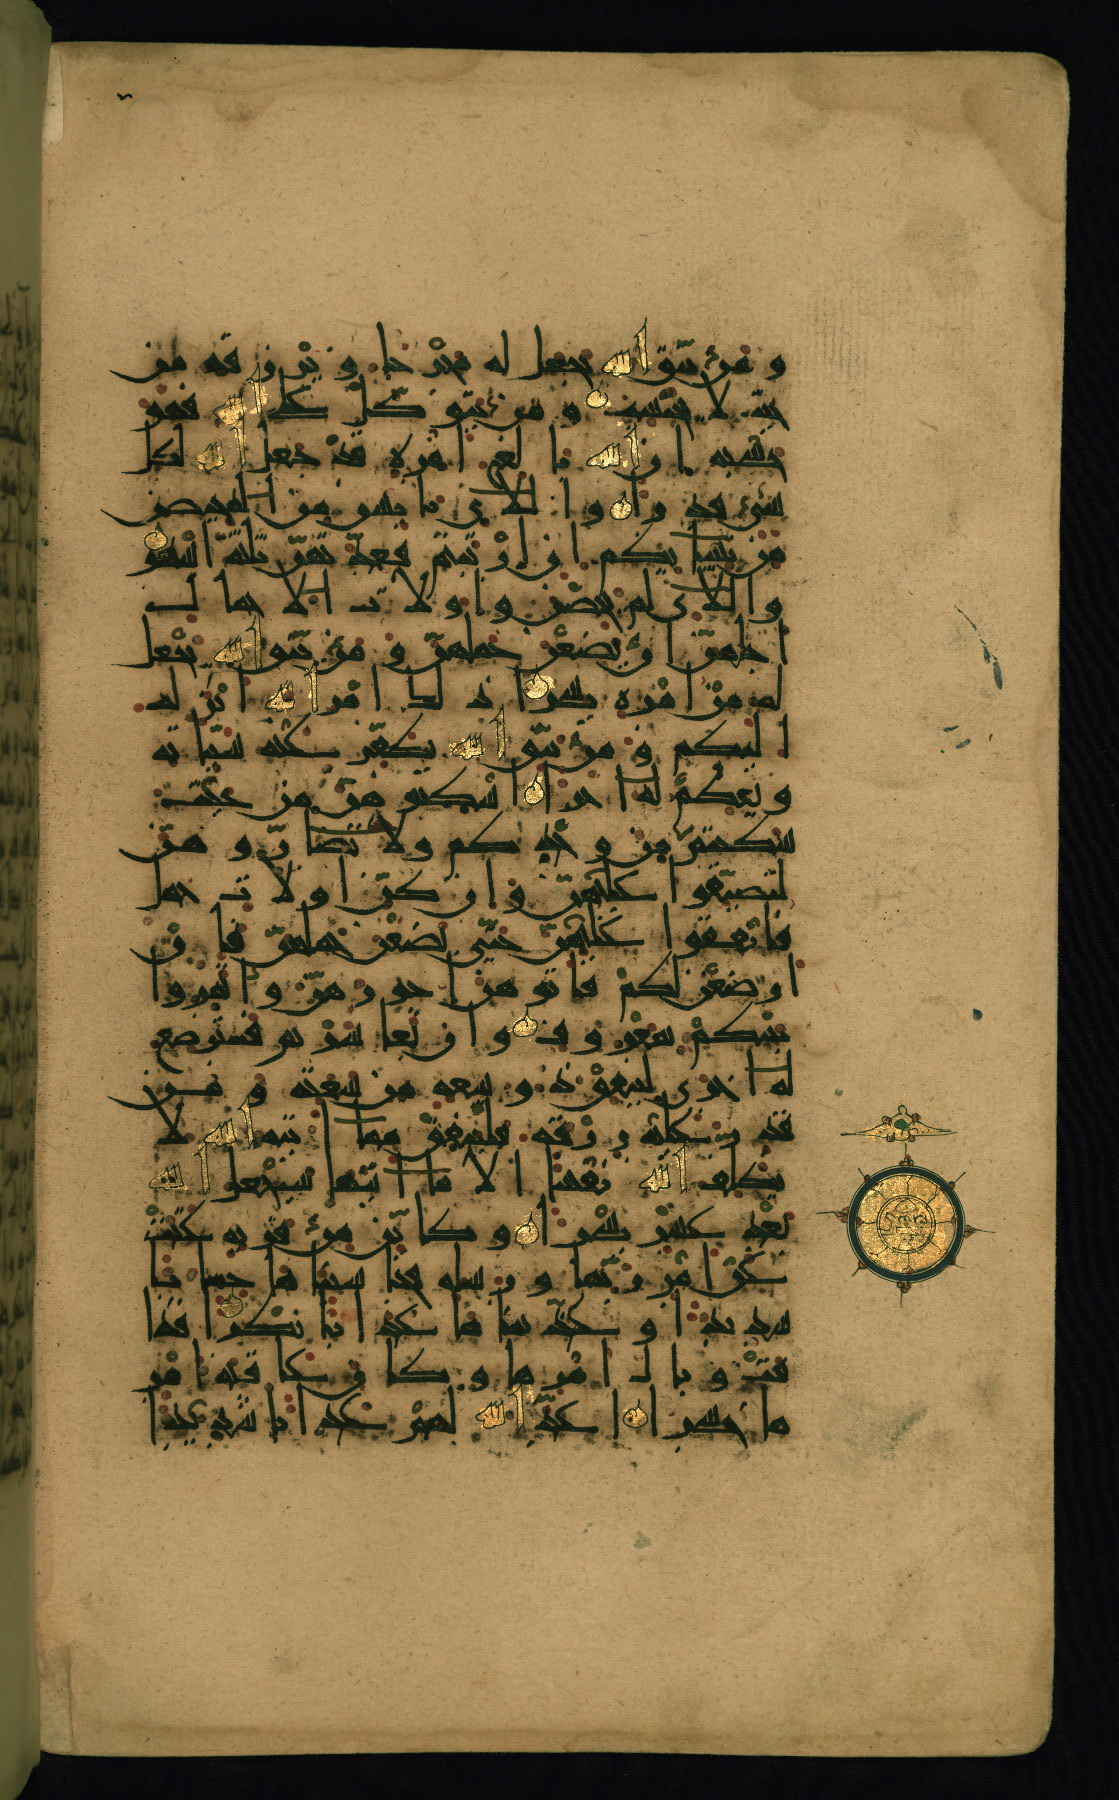 و من يتق الله يجعل له مخرجا و يرزقه من
حيث لا يحتسب و من يتوكل على الله فهو
حسبه ان الله بالغ امره قد جعل الله لكل
شىء قدرا و الائى يئسن من المحيض
من نسائكم ان ارتبتم فعدتهن ثلثة اشهر
و الائى لم يحضن و اولات الاحمال
اجلهن ان يضعن حملهن و من يتق الله يجعل
له من امره يسرا ذلك امر الله انزله
اليكم و من يتق الله يكفر عنه سيئاته
و يعظم له اجرا اسكنوهن من حيث
سكنتم من وجدكم ولا تضاروهن
لتضيقوا عليهن و ان كن اولات حمل
فانفقوا عليهن حتى يضعن حملهن فان
ارضعن لكم فاتوهن اجورهن و اتمروا
بينكم بمعروف و ان تعاسرتم فسترضع
له اخرى لينفق ذو سعة من سعته و من
قدر عليه رزقه فلينفق مما اتيه الله لا
يكلف الله نفسا الا ما اتيها سيجعل الله
بعد عسر يسرا و كاين من قرية عتت
عن امر ربها و رسله فحاسبناها حسابا
شديدا و عذبناها عذابا نكرا فذا
قت و بال امرها و كان عاقبة امر
ها خسرا اعد الله لهم عذابا شديدا